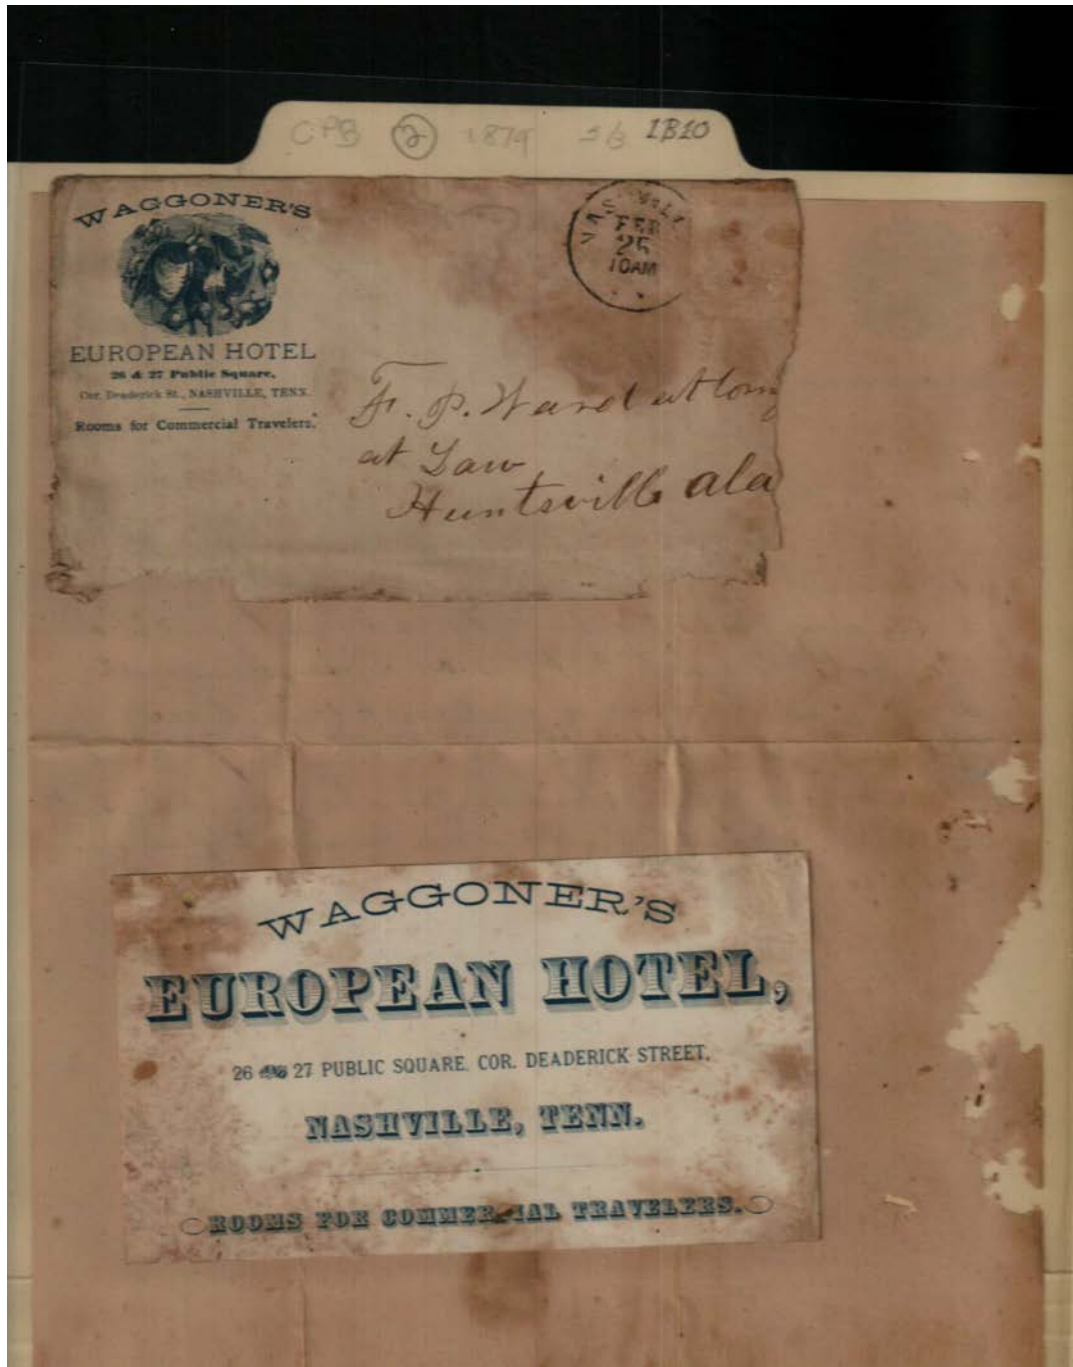 CPB 2 1879 1B10
WAGGONER'S
EUROPEAN HOTEL
26 & 27 Public Square,
Cor. Deaderick St., NASHVILLE, TENN.
Rooms for Commercial Travelers.
FEB
25
10AM
F. P. Ward attorn
at Law
Huntsville ala
WAGGONER'S
EUROPEAN HOTEL,
26 AND 27 PUBLIC SQUARE. COR. DEADERICK STREET,
NASHVILLE, TENN.
ROOMS FOR COMMERCIAL TRAVELERS.